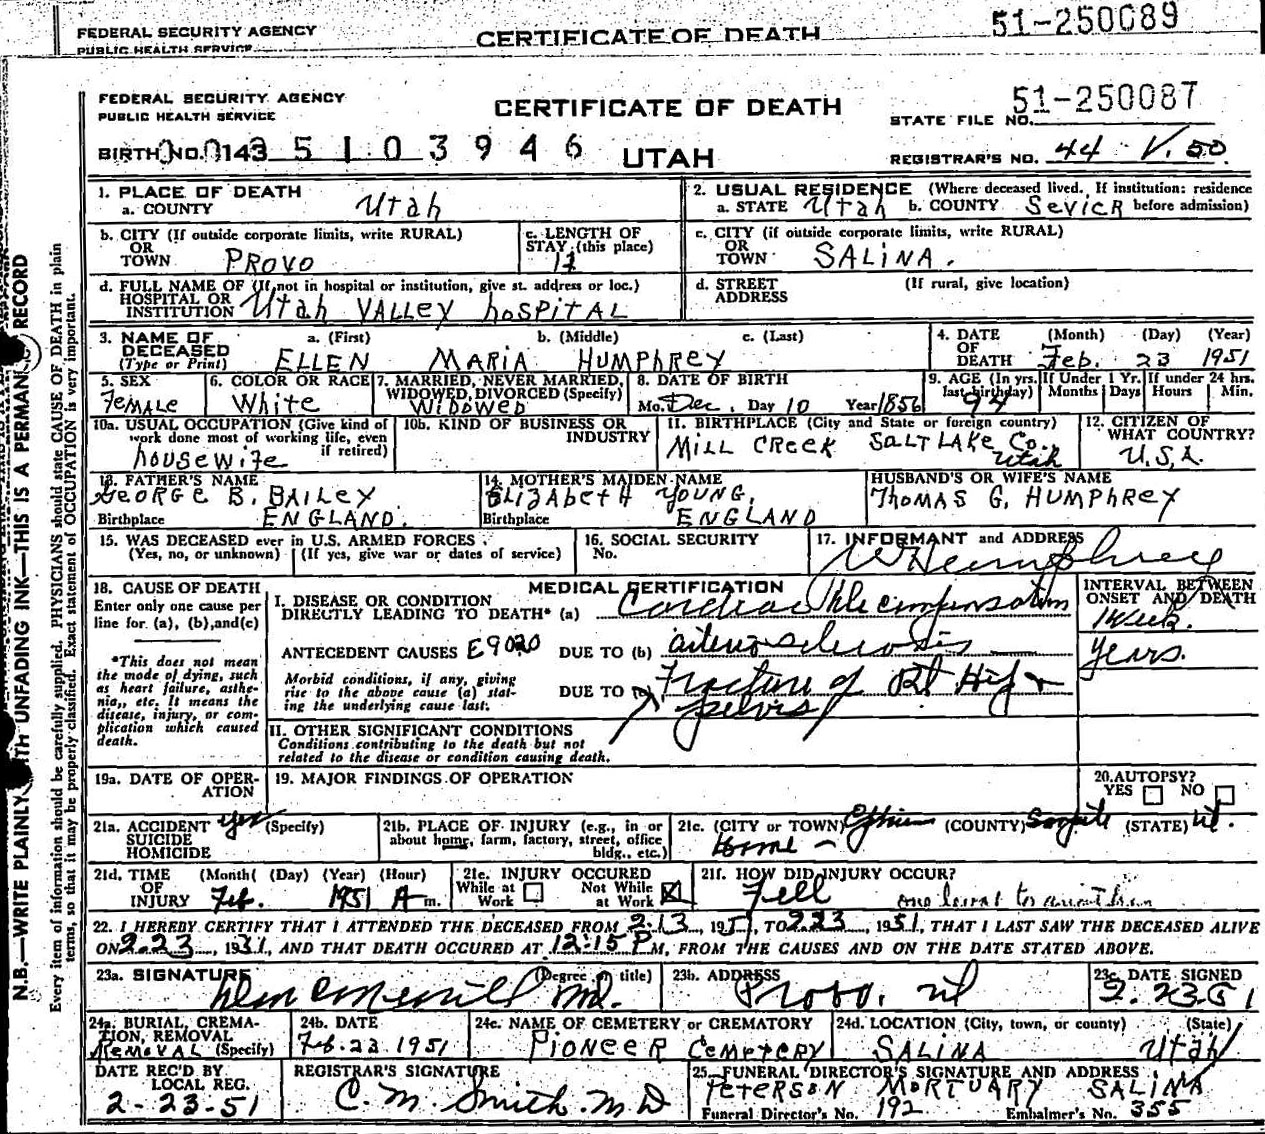 FEDERAL SECURITY AGENCY
PUBLIC HEALTH SERVICE
CERTIFICATE OF DEATH
51-250089
FEDERAL SECURITY AGENCY
PUBLIC HEALTH SERVICE
CERTIFICATE OF DEATH
STATE FILE NO. 51-250087
BIRTH NO. 0143 5103946
UTAH
REGISTRAR'S NO. 44 V. 50
1. PLACE OF DEATH
a. COUNTY Utah
2. USUAL RESIDENCE (Where deceased lived. If institution: residence
a. STATE Utah b. COUNTY SEVIER before admission)
b. CITY (If outside corporate limits, write RURAL)
OR
TOWN PROVO
c. LENGTH OF
STAY (this place)
c. CITY (if outside corporate limits, write RURAL)
OR
TOWN SALINA.
d. FULL NAME OF (If not in hospital or institution, give st. address or loc.)
HOSPITAL OR
INSTITUTION Utah VALLEY hOSPITAL
d. STREET
ADDRESS
(If rural, give location)
3. NAME OF
DECEASED
(Type or Print)
a. (First) b. (Middle) c. (Last)
ELLEN MARIA HUMPHREY
4. DATE
OF
DEATH
(Month) (Day) (Year)
Feb. 23 1951
5. SEX
FEMALE
6. COLOR OR RACE
White
7. MARRIED, NEVER MARRIED,
WIDOWED, DIVORCED (Specify)
WIDOWED
8. DATE OF BIRTH
Mo. Dec. Day 10 Year 1856
9. AGE (In yrs.
last birthday)
94
If Under 1 Yr.
Months Days
If under 24 hrs.
Hours Min.
10a. USUAL OCCUPATION (Give kind of
work done most of working life, even
if retired)
hOUSEWIFE
10b. KIND OF BUSINESS OR
INDUSTRY
11. BIRTHPLACE (City and State or foreign country)
MILL CREEK SALT LAKE Co.
Utah
12. CITIZEN OF
WHAT COUNTRY?
U.S.A.
13. FATHER'S NAME
GEORGE B. BAILEY
Birthplace ENGLAND.
14. MOTHER'S MAIDEN NAME
ELIZABETH YOUNG.
Birthplace ENGLAND
HUSBAND'S OR WIFE'S NAME
THOMAS G. HUMPHREY
15. WAS DECEASED ever in U.S. ARMED FORCES
(Yes, no, or unknown) (If yes, give war or dates of service)
16. SOCIAL SECURITY
No.
17. INFORMANT and ADDRESS
W Humphrey
18. CAUSE OF DEATH
Enter only one cause per
line for (a), (b), and (c)
*This does not mean
the mode of dying, such
as heart failure, asthe-
nia, etc. It means the
disease, injury, or com-
plication which caused
death.
MEDICAL CERTIFICATION
I. DISEASE OR CONDITION
DIRECTLY LEADING TO DEATH* (a) Cardiac decompensation
ANTECEDENT CAUSES E9020 DUE TO (b) arteriosclerosis
Morbid conditions, if any, giving
rise to the above cause (a) stat-
ing the underlying cause last.
DUE TO (c) Fracture of Rt Hip &
pelvis
II. OTHER SIGNIFICANT CONDITIONS
Conditions contributing to the death but not
related to the disease or condition causing death.
INTERVAL BETWEEN
ONSET AND DEATH
1 week.
years.
19a. DATE OF OPER-
ATION
19. MAJOR FINDINGS OF OPERATION
20. AUTOPSY?
YES NO
21a. ACCIDENT yes (Specify)
SUICIDE
HOMICIDE
21b. PLACE OF INJURY (e.g., in or
about home, farm, factory, street, office
bldg., etc.)
21c. (CITY or TOWN) Ephraim (COUNTY) Sanpete (STATE) ut.
Home -
21d. TIME
OF
INJURY
(Month) (Day) (Year) (Hour)
Feb. 1951 A m.
21e. INJURY OCCURED
While at Work Not While at Work
21f. HOW DID INJURY OCCUR?
Fell
22. I HEREBY CERTIFY THAT I ATTENDED THE DECEASED FROM 2-13, 1951, TO 2-23, 1951, THAT I LAST SAW THE DECEASED ALIVE
ON 2-23, 1951, AND THAT DEATH OCCURED AT 12:15 P M, FROM THE CAUSES AND ON THE DATE STATED ABOVE.
23a. SIGNATURE (Degree or title)
Merrill M.D.
23b. ADDRESS
Provo, ut
23c. DATE SIGNED
2.23.51
24a. BURIAL, CREMA-
TION, REMOVAL
REMOVAL (Specify)
24b. DATE
Feb. 23. 1951
24c. NAME OF CEMETERY or CREMATORY
PIONEER CEMETERY
24d. LOCATION (City, town, or county) (State)
SALINA Utah
DATE REC'D BY
LOCAL REG.
2-23-51
REGISTRAR'S SIGNATURE
C. M. Smith. M D
25. FUNERAL DIRECTOR'S SIGNATURE AND ADDRESS
PETERSON MORTUARY SALINA
Funeral Director's No. 192 Embalmer's No. 355
N.B.—WRITE PLAINLY WITH UNFADING INK—THIS IS A PERMANENT RECORD
Every item of information should be carefully supplied. PHYSICIANS should state CAUSE OF DEATH in plain
terms, so that it may be properly classified. Exact statement of OCCUPATION is very important.